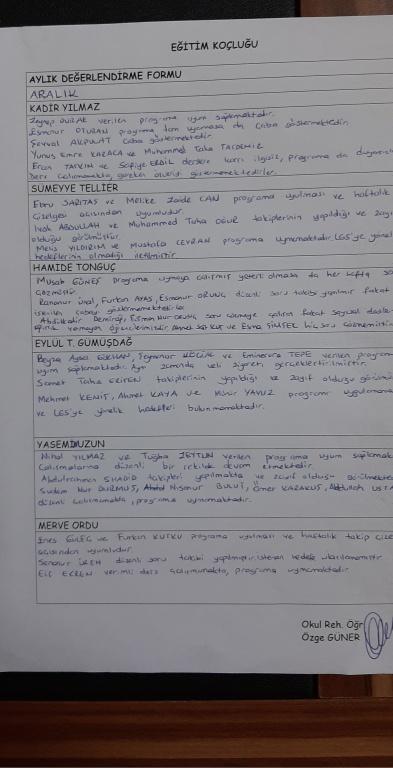 EĞİTİM KOÇLUĞU
AYLIK DEĞERLENDİRME FORMU
ARALIK
KADİR YILMAZ
Zeynep DURAK verilen programa uyum sağlamaktadır.
Esmanur OTURAN programa tam uymasa da çaba göstermektedir.
Şevval AKBULUT çaba göstermektedir.
Yunus Emre KARACA ve Muhammed Taha
Ercan ve Safiye ERBİL derslere karşı ilgisiz, programa da
Ders çalışmamakta, gereken özveriyi göstermemektedirler.
SÜMEYYE TELLİER
Ebru SARITAŞ ve Melike Zaide CAN programa uyulması ve haftalık
Çizelgesi açısından uyumludur.
ABDULLAH ve Muhammed Taha OĞUR takiplerinin yapıldığı ve zayıf
olduğu görülmüştür.
Melis YILDIRIM ve Mustafa CEYRAN programa uymamaktadır. LGS'ye yönelik
hedeflerinin olmadığı iletilmiştir.
HAMİDE TONGUÇ
Musab GÜNEŞ programa uymaya çalışmış yeterli olmasa da her hafta so
çözmüştür.
Rananur Ünal, Furkan AYAS, Esmanur ORUNÇ düzenli soru takibi yapılmış fakat
istenilen çabayı göstermemektedirler.
Abdulkadir Demirağ, Esma Nur soru çözmeye çalışan fakat sayısal
öğrencilerimizdir. Ahmet ve Esma ŞİMŞEK hiç soru çözmemiştir.
EYLÜL T. GÜMÜŞDAĞ
Beyza Aysel GÖKHAN, ve Eminesra TEPE verilen programa
uyum sağlamaktadır. Aynı zamanda veli ziyareti gerçekleştirilmiştir.
Samet Taha takiplerinin yapıldığı ve zayıf olduğu görülmüş
Mehmet KENİŞ, Ahmet KAYA ve YAVUZ programı uygulamamakta
ve LGS'ye yönelik hedefleri bulunmamaktadır.
YASEMİN UZUN
Nihal YILMAZ ve Tuğba ZEYTUN verilen programa uyum sağlamakta
Çalışmalarına düzenli bir şekilde devam etmektedir.
Abdulrahman SHADID takipleri yapılmakta ve zayıf olduğu görülmektedir
Sudem Nur DURMUŞ, Nisanur BULUT, Ömer KARAKUŞ, Abdullah USTA
düzenli çalışmamakta, programa uymamaktadır.
MERVE ORDU
Enes GÜLEÇ ve Furkan KUTKU programa uyulması ve haftalık takip çizel
açısından uyumludur.
Senanur düzenli soru takibi yapılmıştır. İstenen hedefe ulaşılamamıştır.
Elif ECREN verimli ders çalışmamakta, programa uymamaktadır.
Okul Reh. Öğr
Özge GÜNER